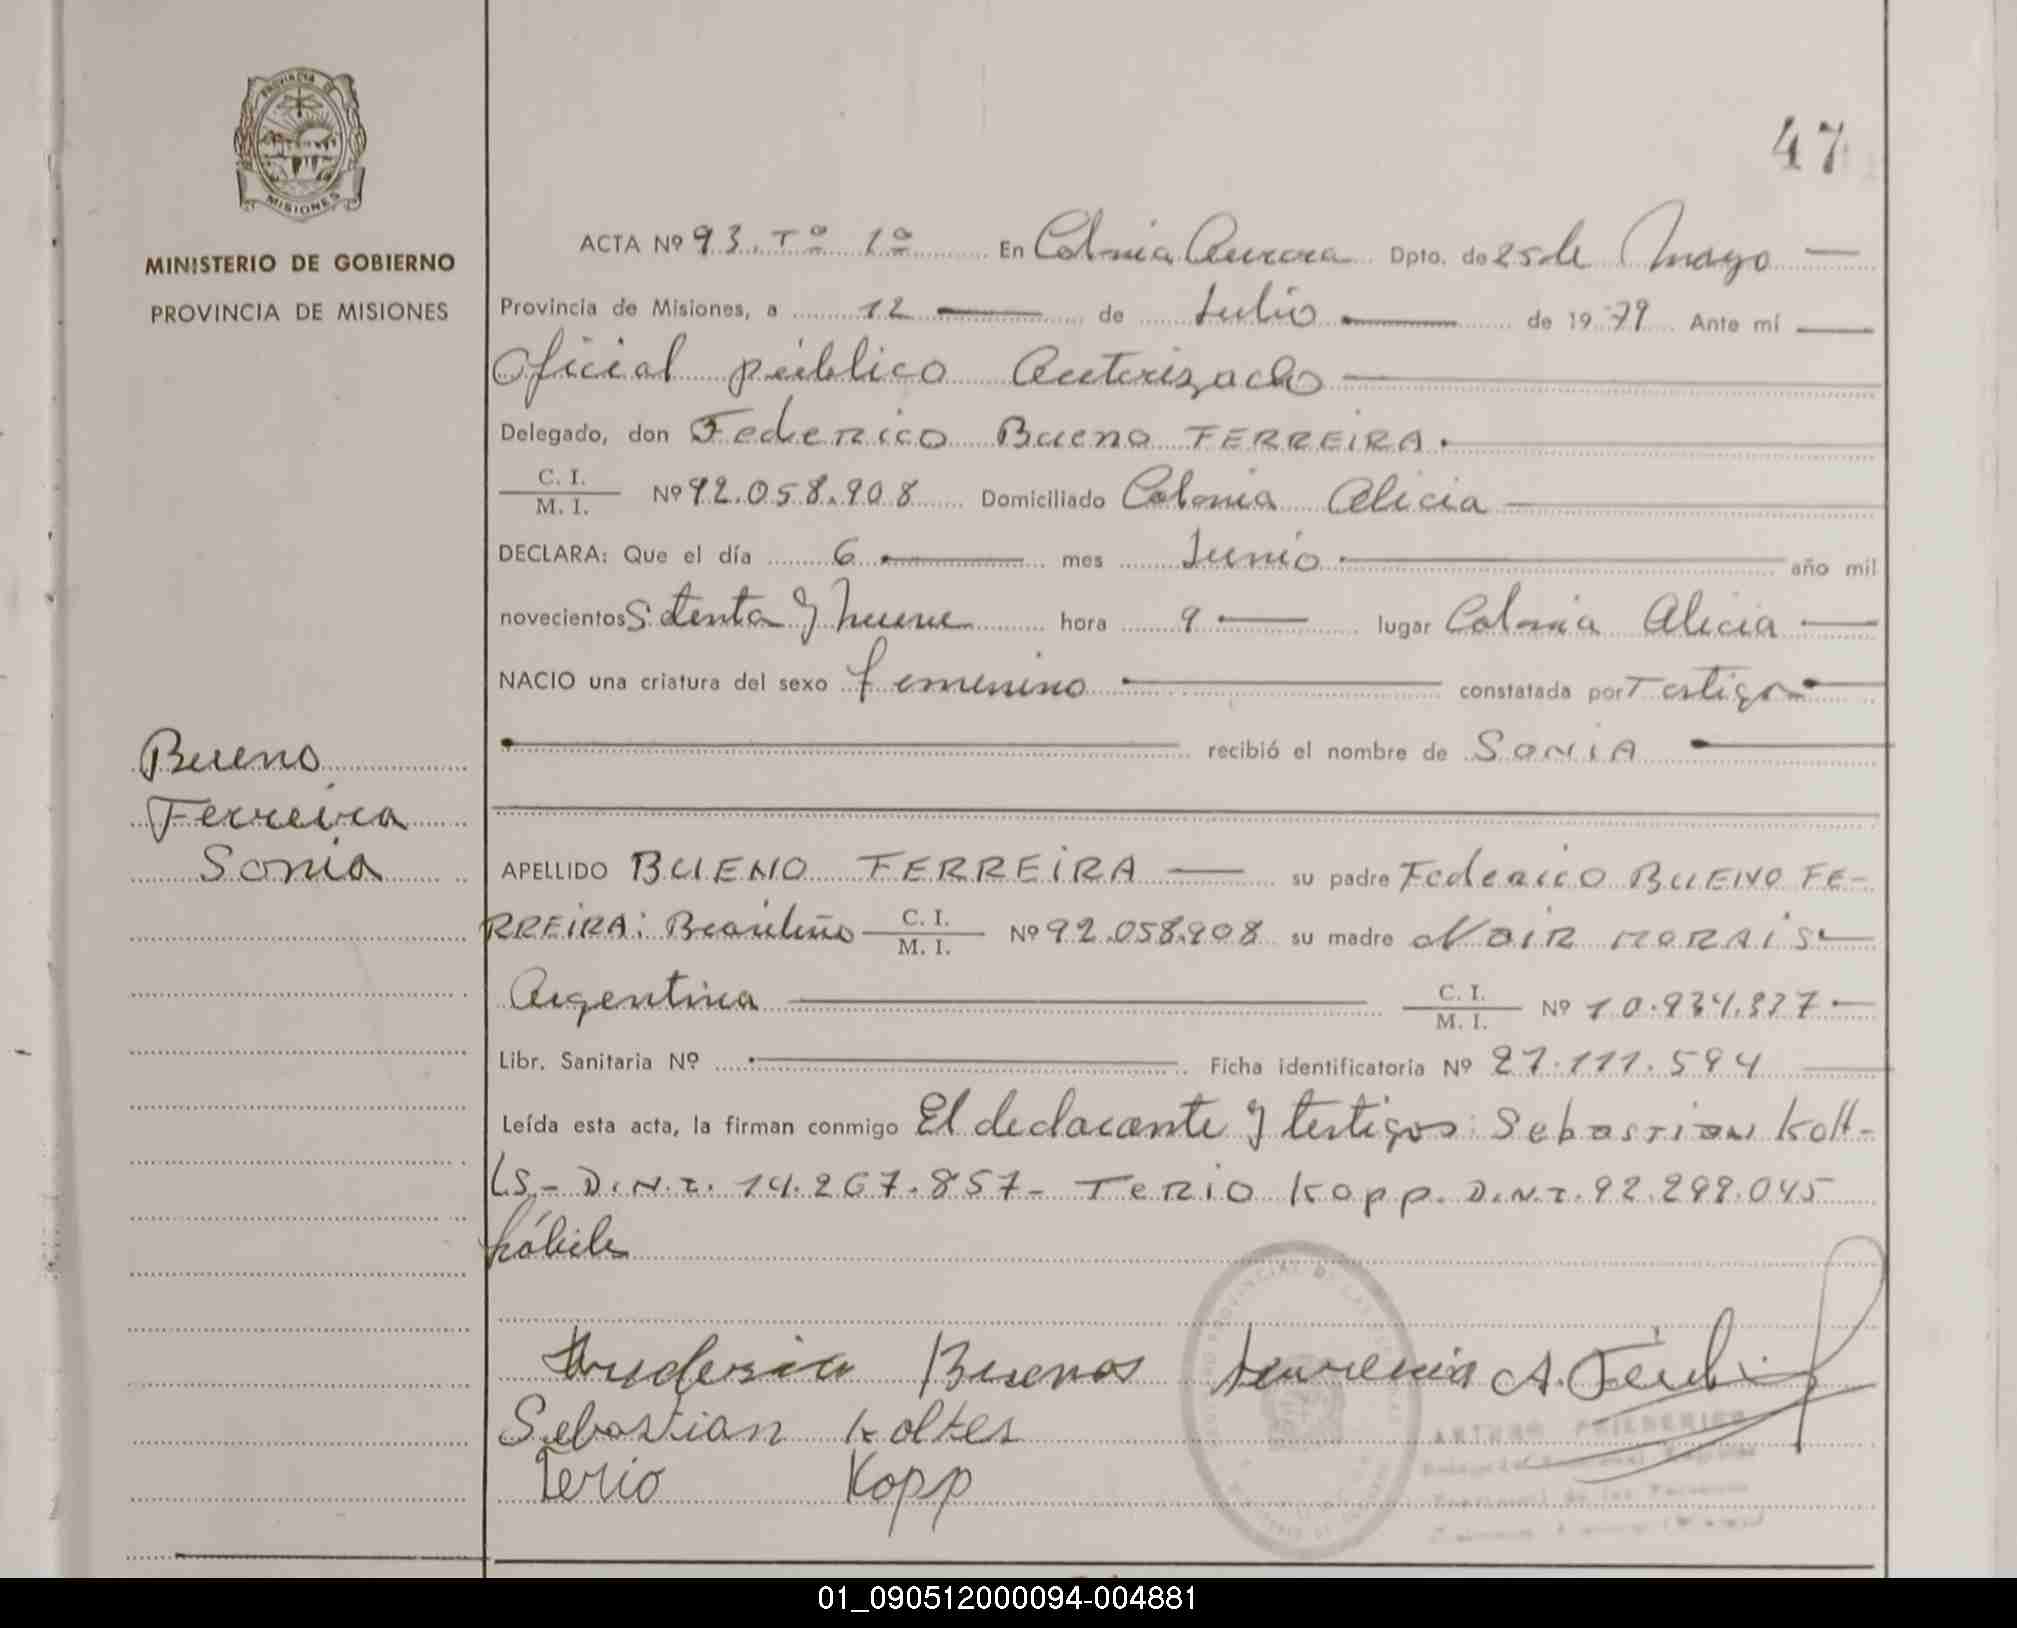 47
PROVINCIA DE
MISIONES
MINISTERIO DE GOBIERNO
PROVINCIA DE MISIONES
ACTA Nº 93. Tº 1º En Colonia Aurora Dpto. de 25 de Mayo
Provincia de Misiones, a 12 de Julio de 1979 Ante mí
Oficial público Autorizado
Delegado, don Federico Bueno FERREIRA.
C. I.
M. I. Nº 92.058.908 Domiciliado Colonia Alicia
DECLARA: Que el día 6 mes Junio año mil
novecientos Setenta y nueve hora 9 lugar Colonia Alicia
NACIO una criatura del sexo femenino constatada por Testigo
recibió el nombre de SONIA
Bueno
Ferreira
Sonia
APELLIDO BUENO FERREIRA su padre Federico BUENO FE-
RREIRA: Brasileño C. I. M. I. Nº 92.058.908 su madre NAIR MORAIS
Argentina C. I. M. I. Nº 10.934.337
Libr. Sanitaria Nº Ficha identificatoria Nº 27.111.594
Leída esta acta, la firman conmigo El declarante y testigos: Sebastian Kolt-
es.- D.N.I. 14.267.857- Terio Kopp. D.N.I. 92.299.045
hábiles
Bueno
Sebastian Koltes
Terio Kopp
01_090512000094-004881